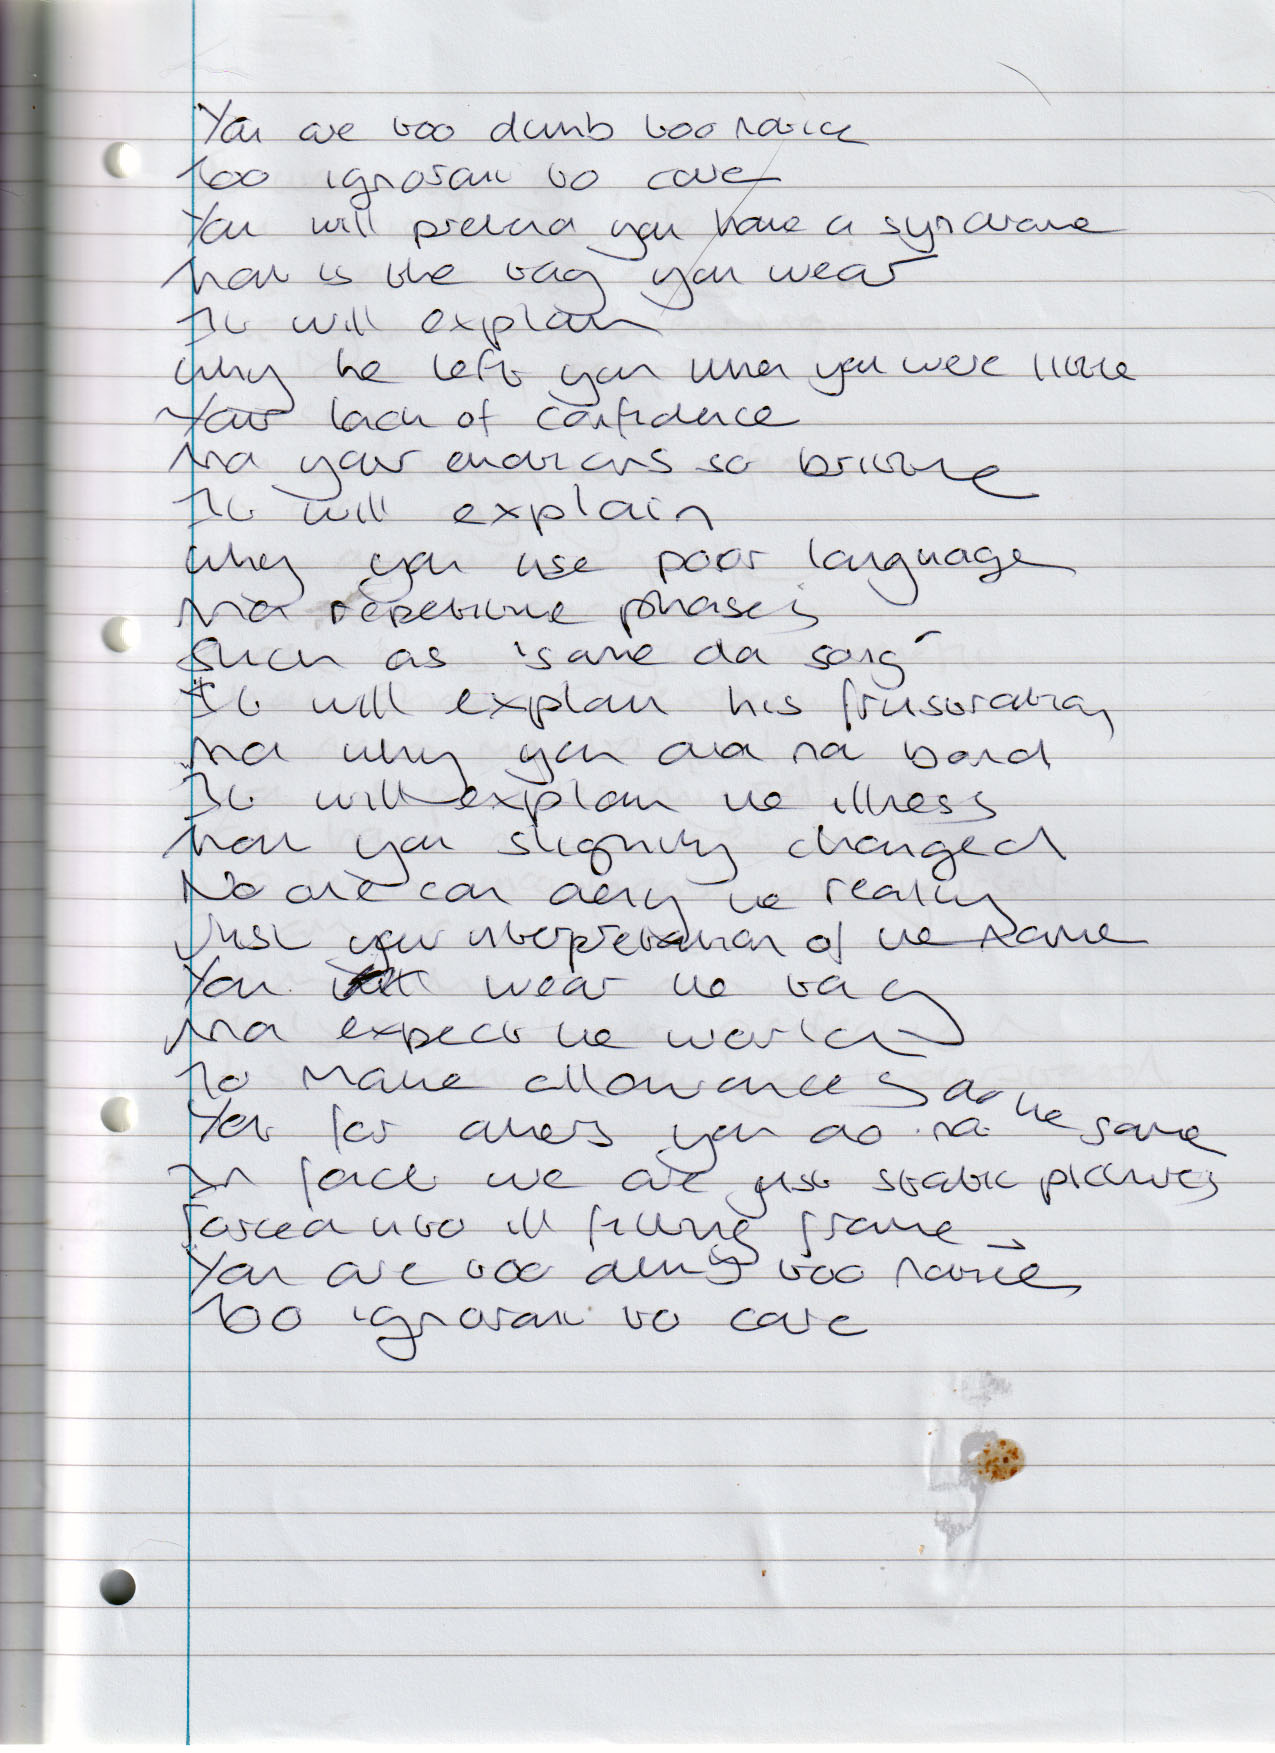 You are too dumb too naive
Too ignorant to care
You will pretend you have a syndrome
That is the tag you wear
It will explain
Why he left you when you were little
Your lack of confidence
And your emotions so brittle
It will explain
Why you use poor language
And repetitive phases
Such as 'same da song'
It will explain his frustration
And why you did not bond
It will explain the illness
That you slightly changed
No one can deny the reality
Just your interpretation of the same
You will wear the tag
And expect the world
To make allowances do the same
Yet for others you do not
In fact we are just static pictures
Forced into ill fitting frame
You are too dumb too naive
Too ignorant to care